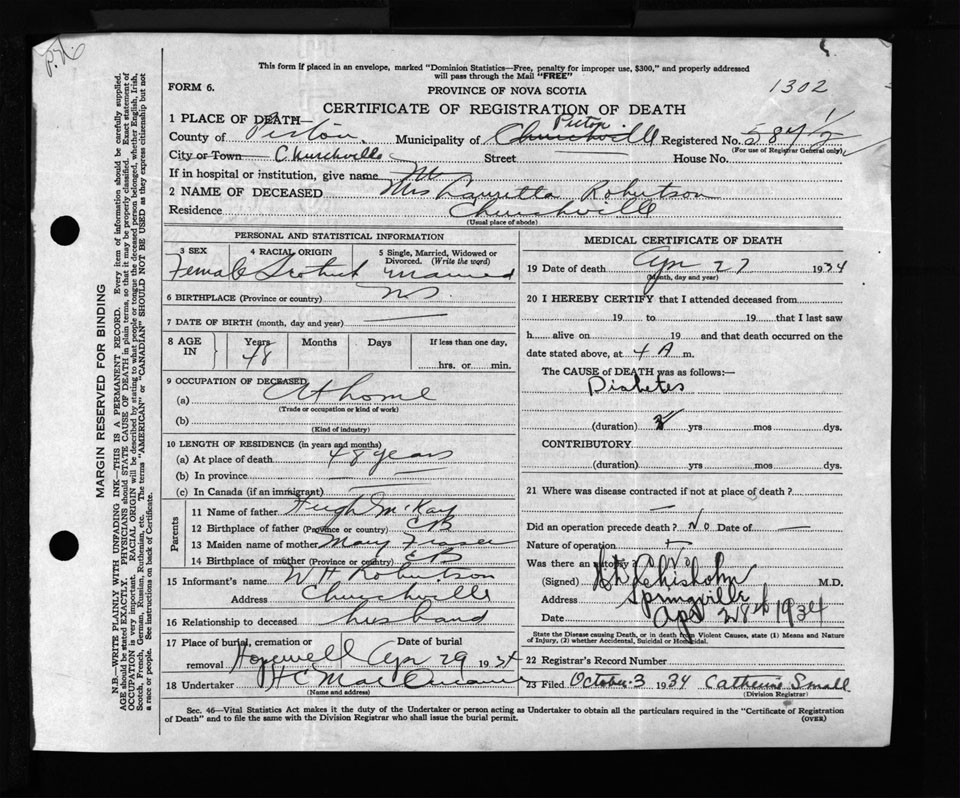 This form if placed in an envelope, marked "Dominion Statistics—Free, penalty for improper use, $300," and properly addressed
will pass through the Mail "FREE"
FORM 6.
PROVINCE OF NOVA SCOTIA
1302
CERTIFICATE OF REGISTRATION OF DEATH
1 PLACE OF DEATH—
Pictou
County of Pictou Municipality of Churchville Registered No. 584 1/2
(For use of Registrar General only)
City or Town Churchville Street House No.
If in hospital or institution, give name
2 NAME OF DECEASED Mrs Robertson
Residence Churchville
(Usual place of abode)
PERSONAL AND STATISTICAL INFORMATION
3 SEX 4 RACIAL ORIGIN 5 Single, Married, Widowed or Divorced. (Write the word)
Female Scotch Married
6 BIRTHPLACE (Province or country) N.S.
7 DATE OF BIRTH (month, day and year)
8 AGE IN Years Months Days If less than one day,
48 hrs. or min.
9 OCCUPATION OF DECEASED
(a) At home
(Trade or occupation or kind of work)
(b)
(Kind of industry)
10 LENGTH OF RESIDENCE (in years and months)
(a) At place of death 48 years
(b) In province
(c) In Canada (if an immigrant)
Parents
11 Name of father Hugh McKay
12 Birthplace of father (Province or country) C B
13 Maiden name of mother Mary Fraser
14 Birthplace of mother (Province or country) E B
15 Informant's name W H Robertson
Address Churchville
16 Relationship to deceased husband
17 Place of burial, cremation or Date of burial
removal Hopewell Apr 29 1934
18 Undertaker H C
(Name and address)
MEDICAL CERTIFICATE OF DEATH
19 Date of death Apr 27 1934
(Month, day and year)
20 I HEREBY CERTIFY that I attended deceased from
19 to 19 that I last saw
h alive on 19 and that death occurred on the
date stated above, at 4 A m.
The CAUSE of DEATH was as follows:—
Diabetes
(duration) yrs mos dys.
CONTRIBUTORY
(duration) yrs mos dys.
21 Where was disease contracted if not at place of death?
Did an operation precede death? No Date of
Nature of operation
Was there an autopsy? No
(Signed) Chisholm M.D.
Address Springville
Date Apr 28th 1934
State the Disease causing Death, or in death from Violent Causes, state (1) Means and Nature
of Injury, (2) whether Accidental, Suicidal or Homicidal.
22 Registrar's Record Number
23 Filed October 3 1934 Catherine Small
(Division Registrar)
Sec. 46—Vital Statistics Act makes it the duty of the Undertaker or person acting as Undertaker to obtain all the particulars required in the "Certificate of Registration
of Death" and to file the same with the Division Registrar who shall issue the burial permit.
(OVER)
MARGIN RESERVED FOR BINDING
N.B.—WRITE PLAINLY WITH UNFADING INK—THIS IS A PERMANENT RECORD. Every item of information should be carefully supplied.
AGE should be stated EXACTLY. PHYSICIANS should STATE CAUSE OF DEATH in plain terms, so that it may be properly classified. Exact statement of
OCCUPATION is very important. RACIAL ORIGIN will be described by stating to what people or tongue the deceased person belonged, whether English, Irish,
Scotch, French, German, Russian, Ruthenian, etc. The terms "AMERICAN" or "CANADIAN" SHOULD NOT BE USED as they express citizenship but not
a race or people. See instructions on back of Certificate.